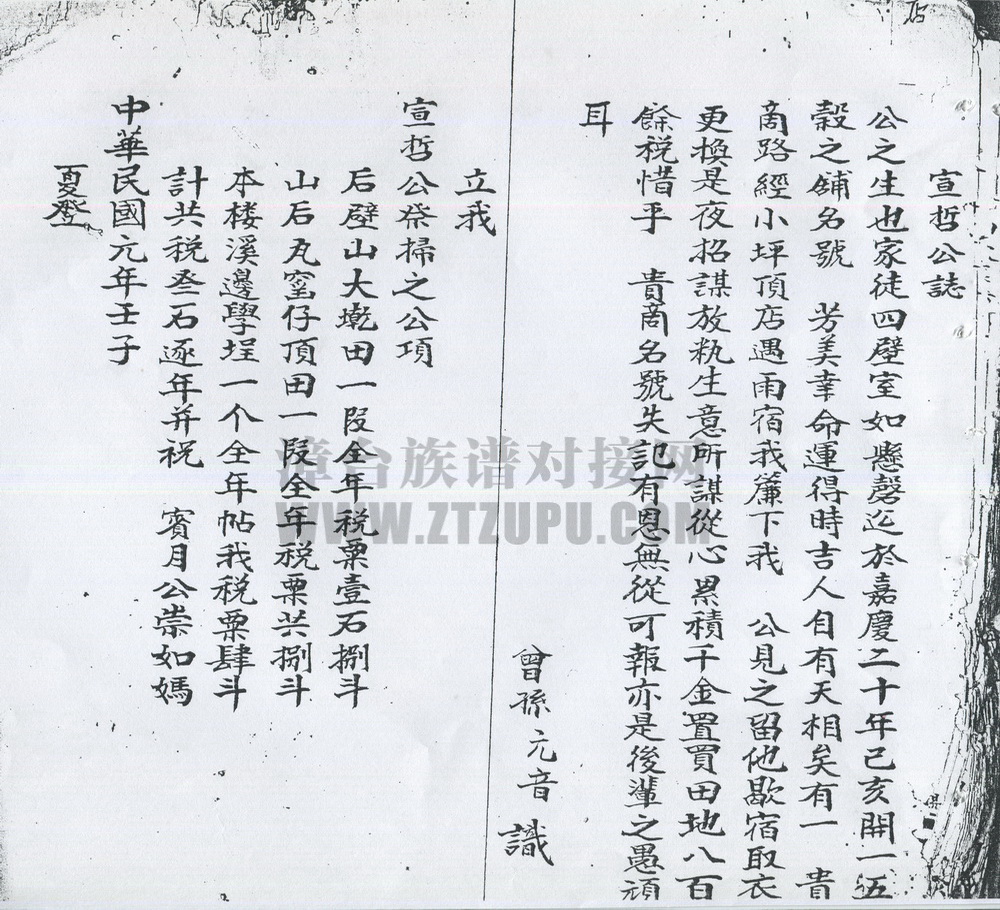 宣哲公誌
公之生也家徒四壁室如懸磬迄於嘉慶二十年己亥開一五
穀之鋪名號 芳美幸命運得時吉人自有天相矣有一 貴
商路經小坪頂店遇雨宿我簷下我 公見之留他歇宿取衣
更換是夜招謀放籺生意所謀從心累積千金置買田地八百
餘税惜乎 貴商名號失記有恩無從可報亦是後輩之愚頑
耳
曾孫元音 識
立我
宣哲公祭掃之公項
后壁山大墘田一段全年税粟壹石捌斗
山后瓦窑仔頂田一段全年税粟共捌斗
本楼溪邊學埕一个全年帖我税粟肆斗
計共税叁石逐年并祝 賓月公崇如媽
中華民國元年壬子
夏登
漳台族谱对接网
WWW.ZTZUPU.COM